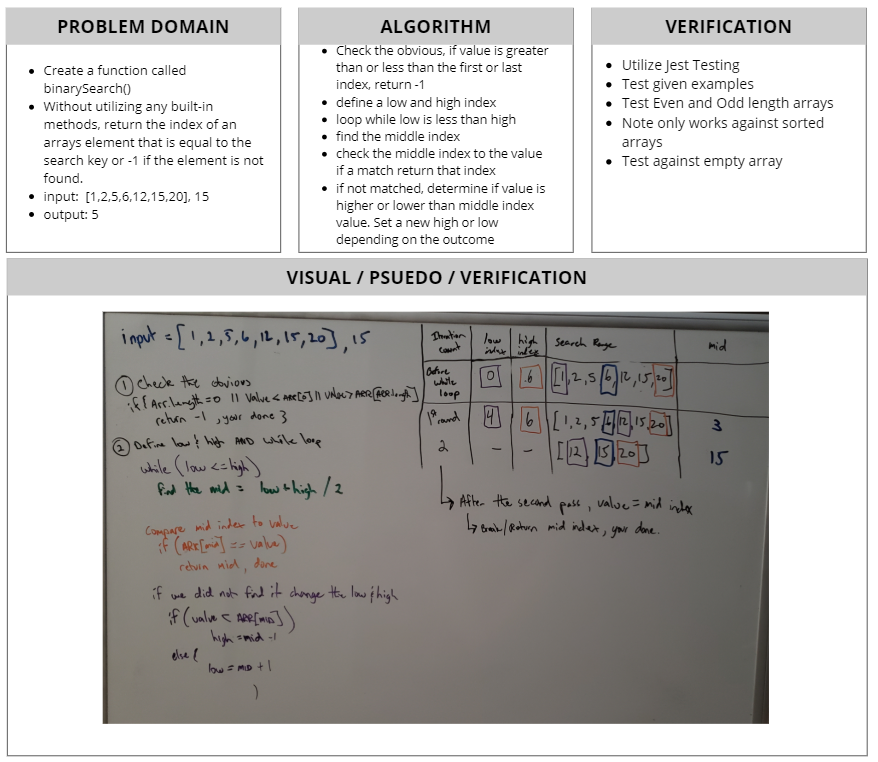 PROBLEM DOMAIN
• Create a function called
binarySearch()
• Without utilizing any built-in
methods, return the index of an
arrays element that is equal to the
search key or -1 if the element is not
found.
• input: [1,2,5,6,12,15,20], 15
• output: 5
ALGORITHM
• Check the obvious, if value is greater
than or less than the first or last
index, return -1
• define a low and high index
• loop while low is less than high
• find the middle index
• check the middle index to the value
if a match return that index
• if not matched, determine if value is
higher or lower than middle index
value. Set a new high or low
depending on the outcome
VERIFICATION
• Utilize Jest Testing
• Test given examples
• Test Even and Odd length arrays
• Note only works against sorted
arrays
• Test against empty array
VISUAL / PSUEDO / VERIFICATION
input = [1,2,5,6,12,15,20], 15
① Check the obvious
if { Arr.length = 0 || Value < ARR[0] || Value > ARR[ARR.length]
return -1, your done }
② Define low & high AND while loop
while (low <= high)
find the mid = low + high / 2
compare mid index to value
if (ARR[mid] == value)
return mid, done
if we did not find it change the low & high
if (value < ARR[MID])
high = mid - 1
else {
low = MID + 1
)
Iteration count low index high index Search Range mid
Define while loop 0 6 [1,2,5,6,12,15,20]
1st round 4 6 [1,2,5,6,12,15,20] 3
2 - - [12,15,20] 15
After the second pass, value = mid index
Break/Return mid index, your done.